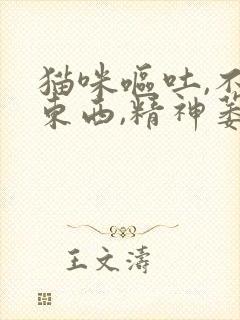 猫咪呕吐,不
东西,精神萎
王文涛